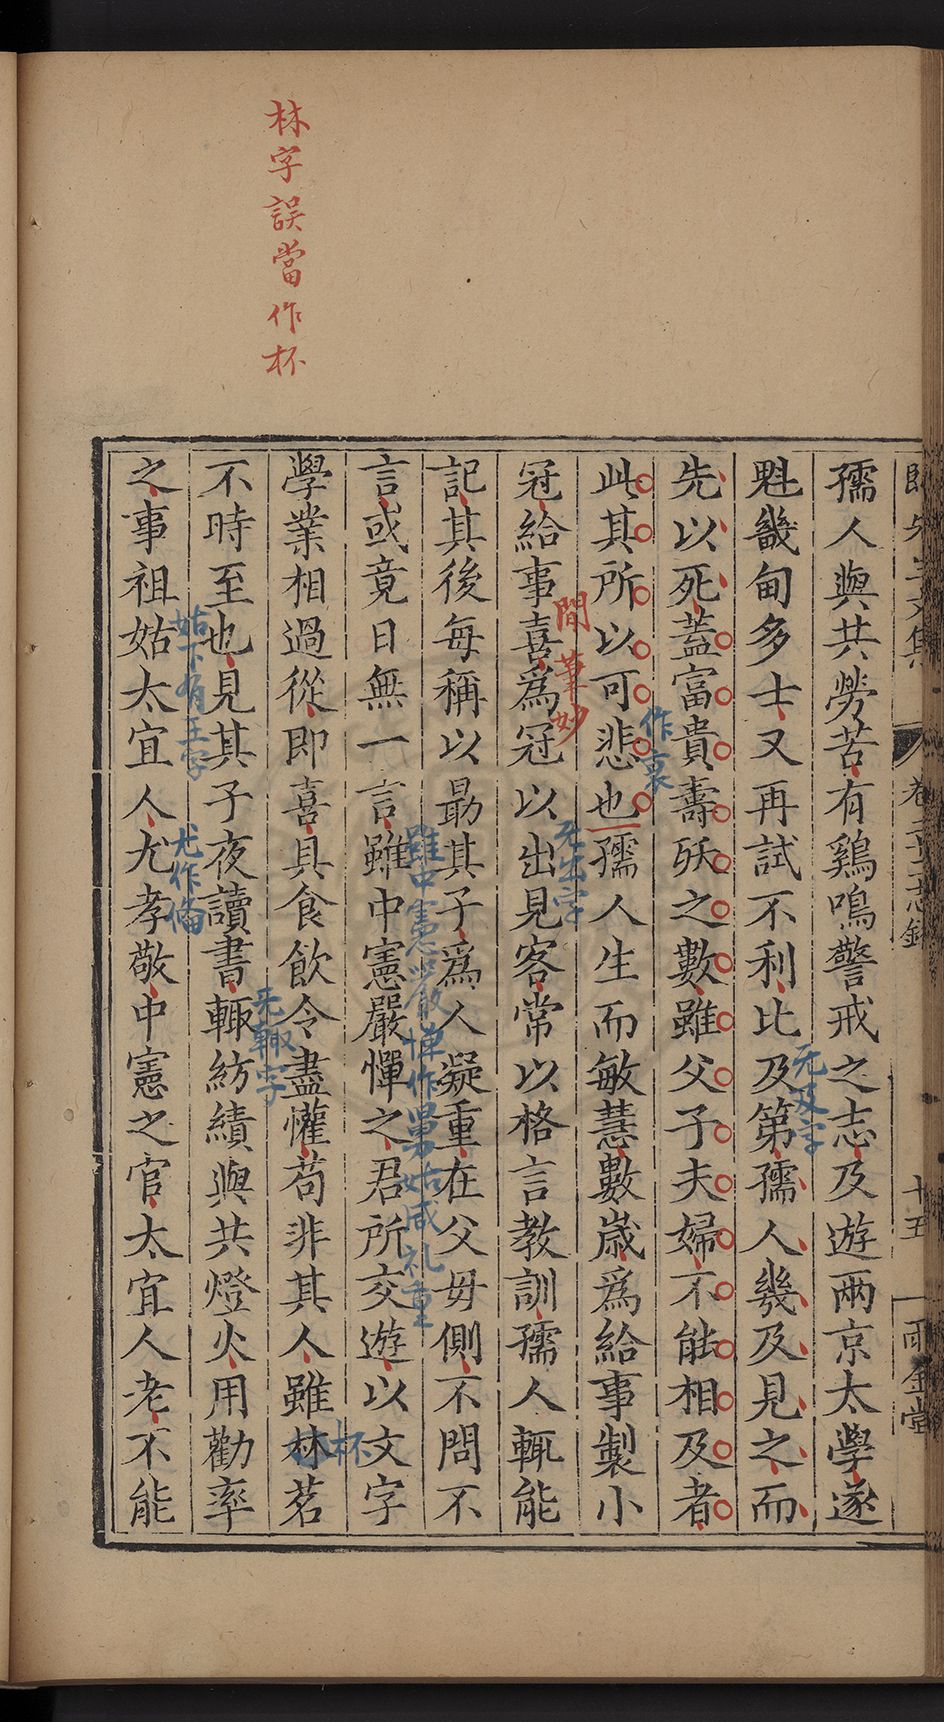 卷二十二志銘
十五
雨金堂
孺人與共勞苦有鷄鳴警戒之志及遊兩京太學遂
魁畿甸多士又再試不利比及第孺人幾及見之而
无及字
先以死蓋富貴壽殀之數雖父子夫婦不能相及者
作裏
此其所以可悲也孺人生而敏慧數歲為給事製小
間筆妙
无出字
冠給事喜為冠以出見客常以格言教訓孺人輒能
記其後每稱以勗其子為人凝重在父毋側不問不
雖中憲嚴憚作男姑咸礼重
言或竟日無一言雖中憲嚴憚之君所交遊以文字
杯
學業相過從即喜具食飲令盡懽苟非其人雖林茗
林字誤當作杯
无輒字
不時至也見其子夜讀書輒紡績與共燈火用勸率
姑下有王字
尤作脩
之事祖姑太宜人尤孝敬中憲之官太宜人老不能